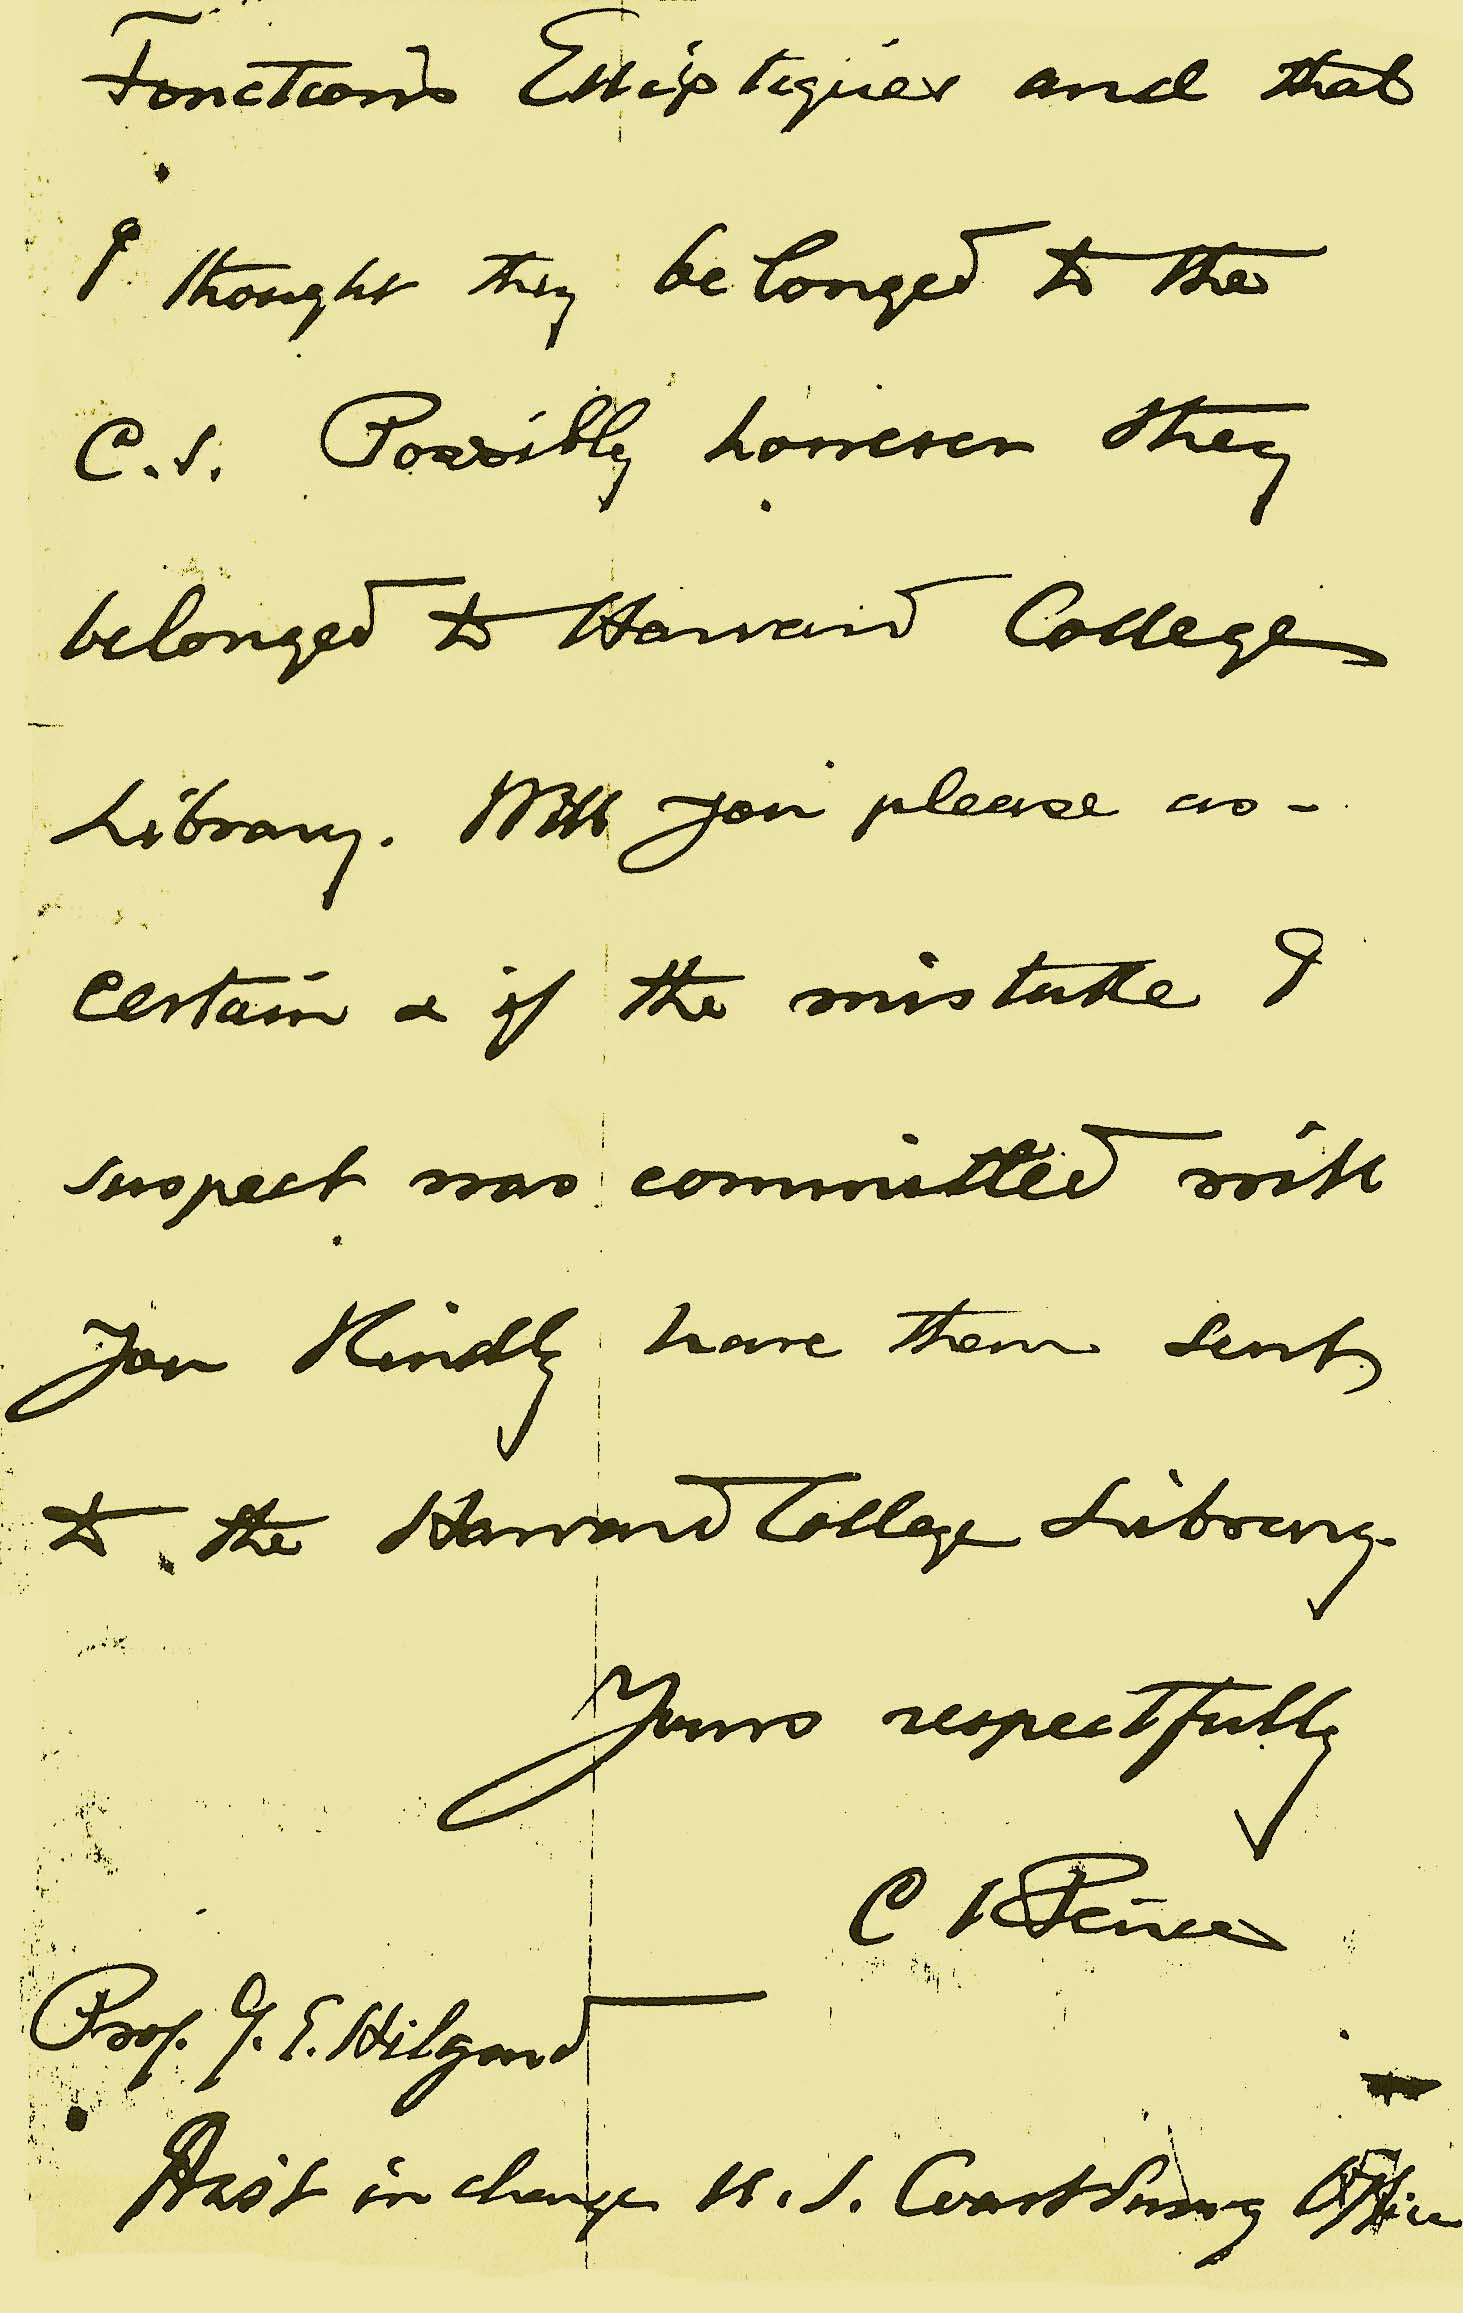 Fonctions Elliptiques and that
I thought they belonged to the
C.S. Possibly however they
belonged to Harvard College
Library. Will you please as-
certain & if the mistake I
suspect was committed will
you kindly have them sent
to the Harvard College Library.
Yours respectfully
C S Peirce
Prof. J. E. Hilgard
Ass't in charge U.S. Coast Survey Office